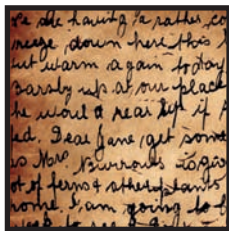 are having a rather co
down here this
but warm again today
up at our place
he would a real if
ed. Dear Jane, get some
is Mrs Burrows is giv
ot of ferns & other plants
ome. I am going to b